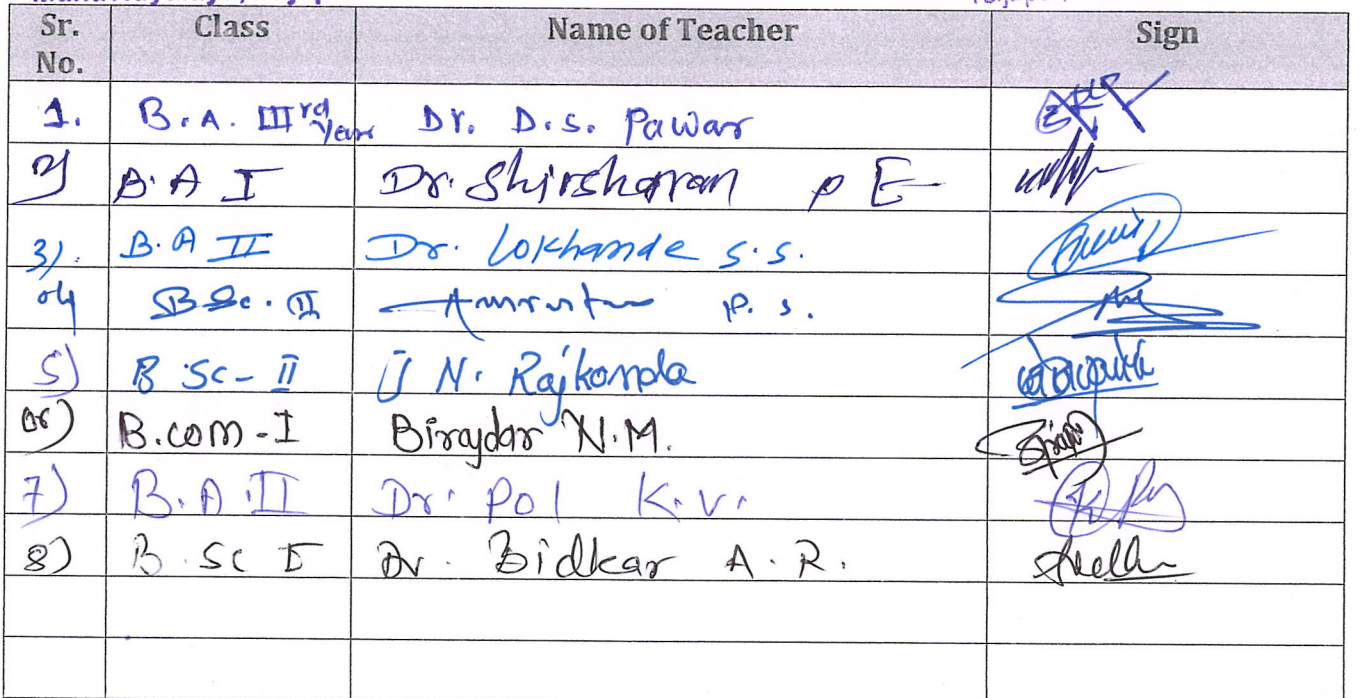 Sr. No. Class Name of Teacher Sign
1. B.A. IIIrd Year Dr. D.S. Pawar
2) B.A I Dr. Shirsharan P E
3). B.A II Dr. Lokhande S.S.
04 BSc. II Amruta P. S.
5) B SC- II U N. Rajkonda
06) B.COM - I Birajdar N.M.
7) B.A.II Dr. Pol K.V.
8) B. SC I Dr. Bidkar A.R.